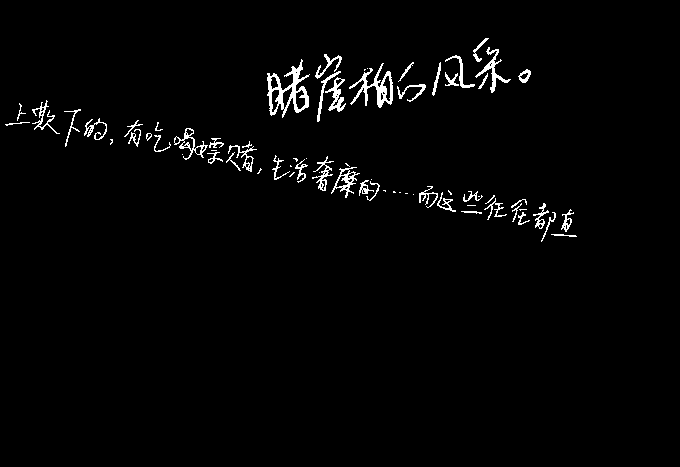 睹崖柏的风采。
上欺下的,有吃喝嫖赌,生活奢糜的……而这些往往都直